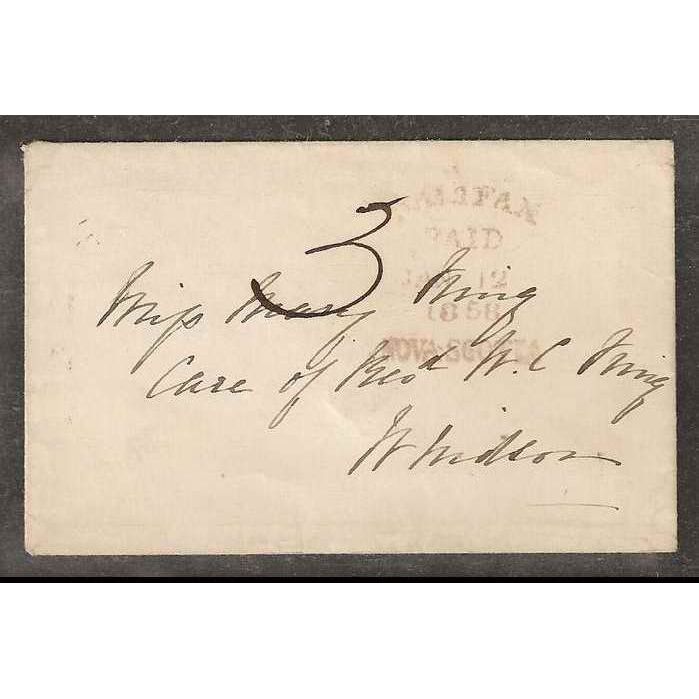 HALIFAX
PAID
JAN 12
1858
NOVA-SCOTIA
3
Miss Mary King
Care of Revd W. C King
Windsor